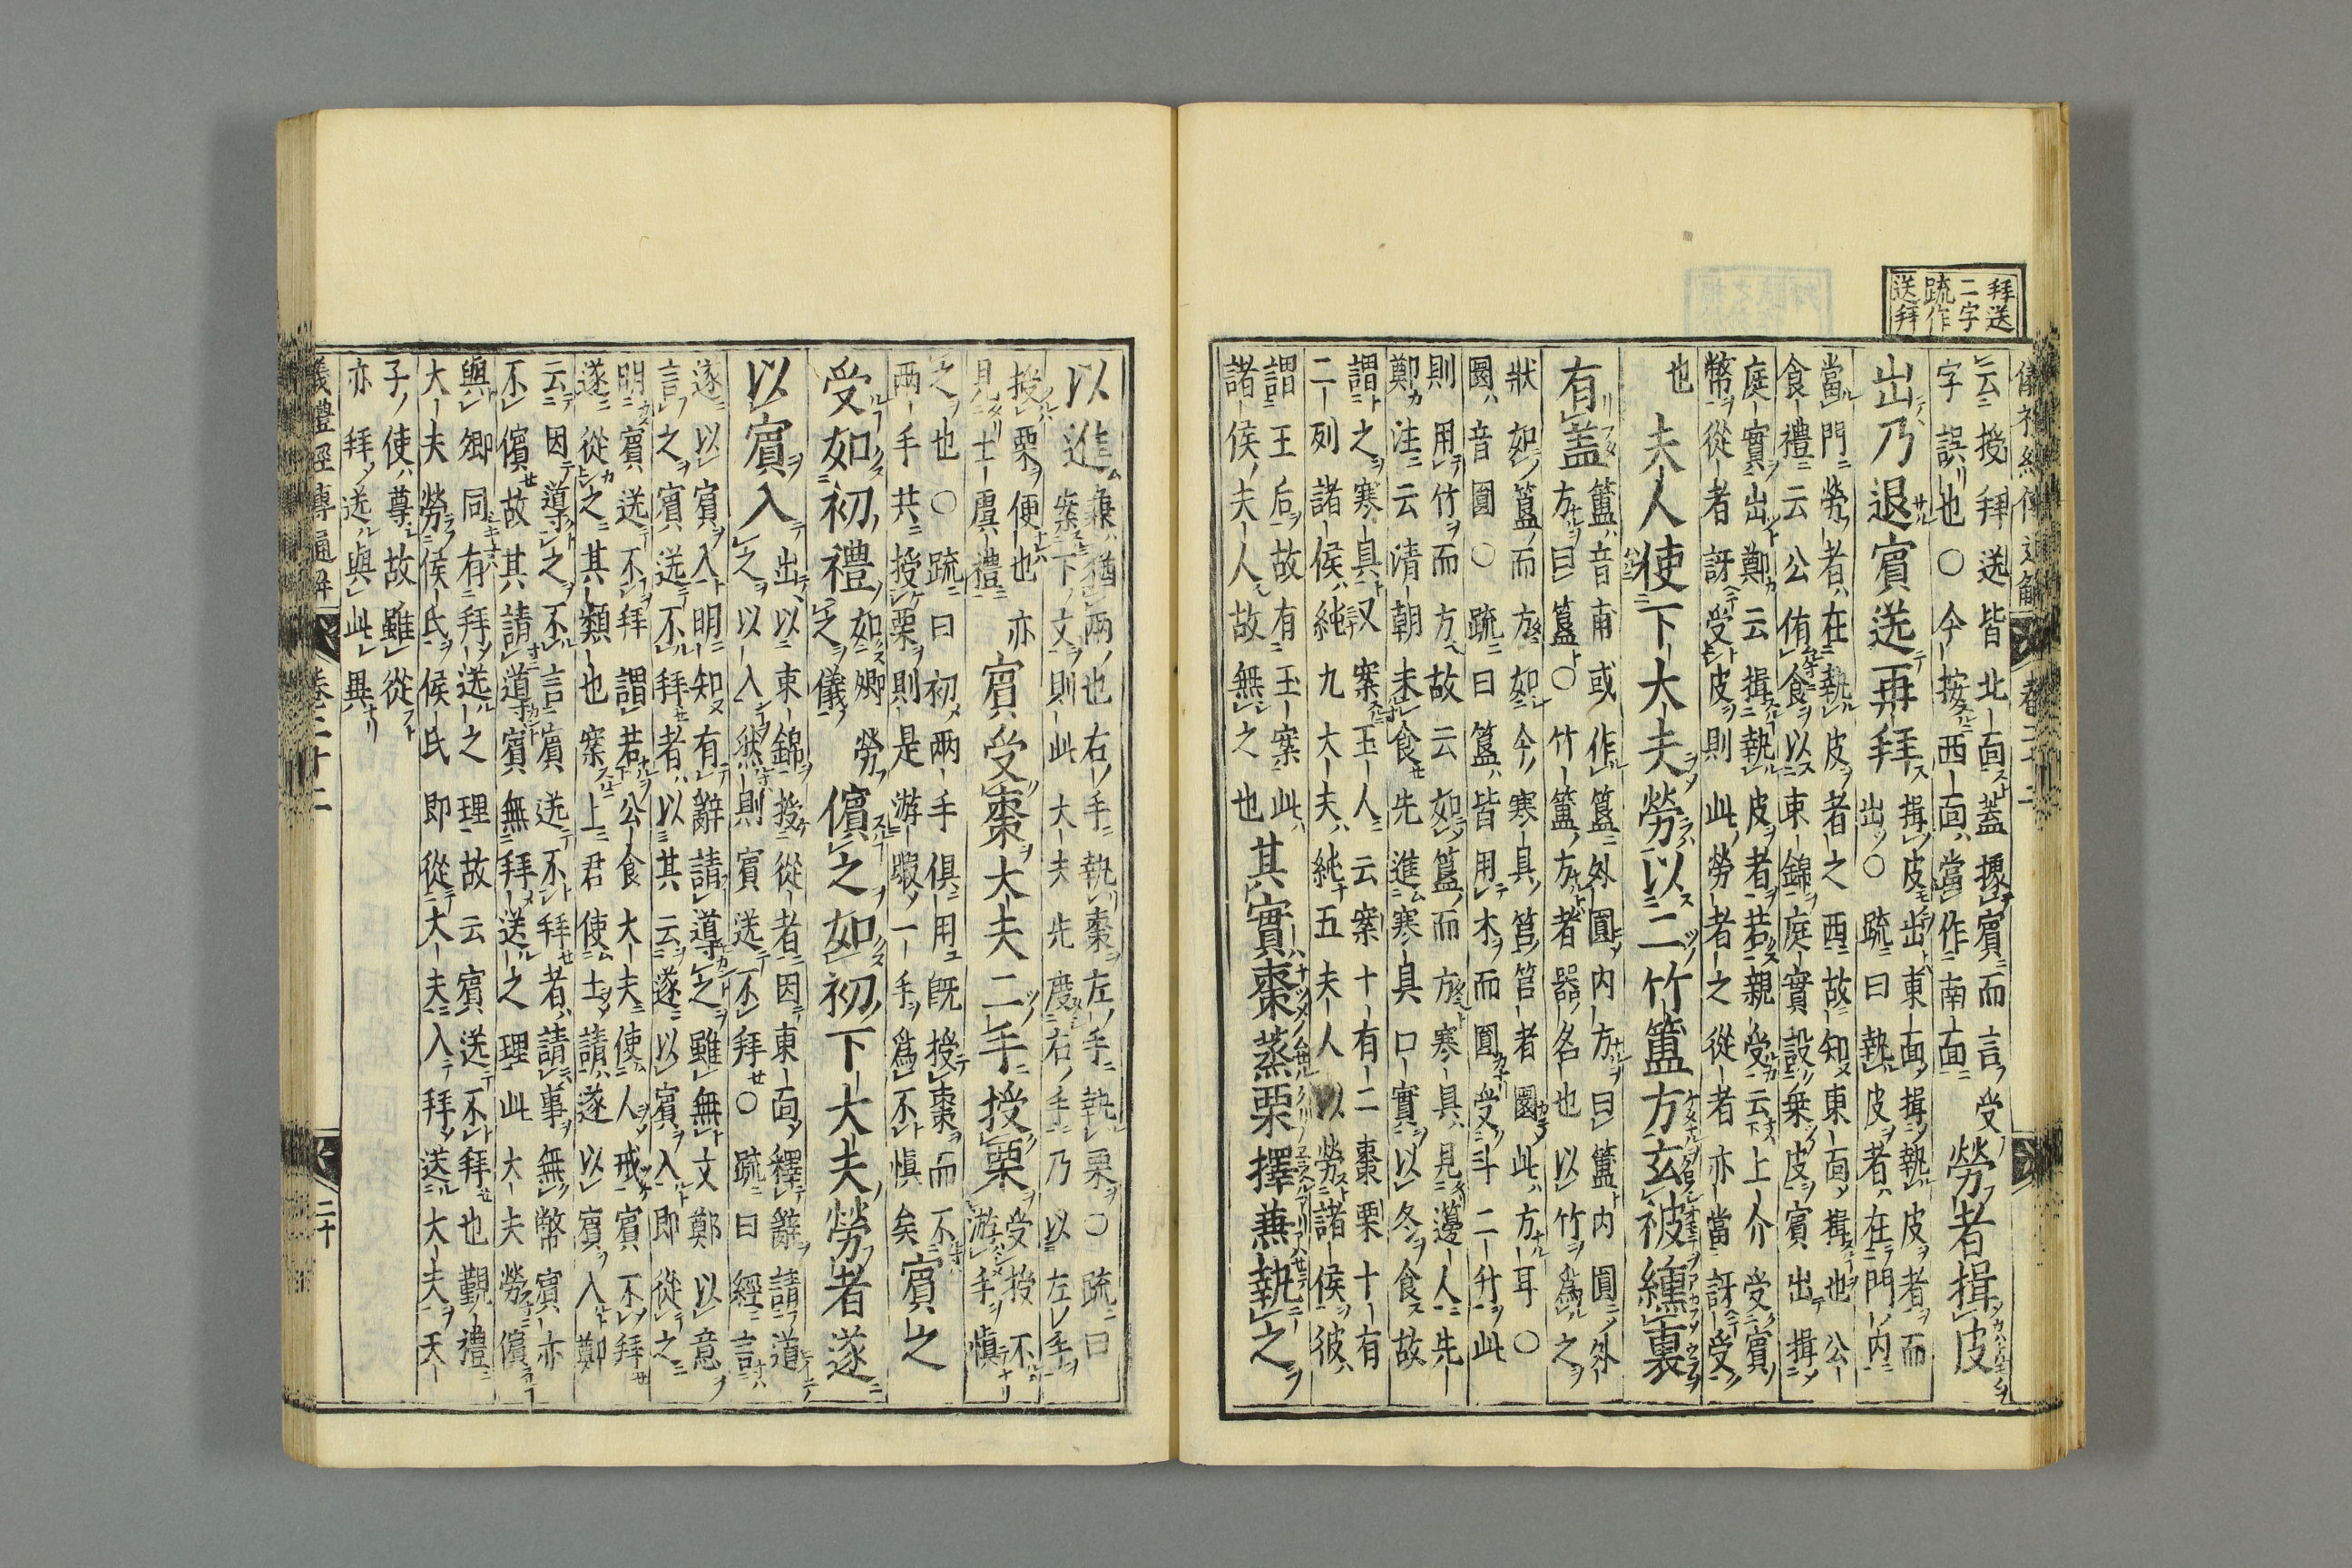 拜送
二字
疏作
送拜
儀禮經傳通解 卷二十二
云授拜送皆北面蓋據賓而言受
字誤也○今按西面當作南面
勞者揖皮
出乃退賓送再拜
揖皮出東面揖執皮者而
出○疏曰執皮者在門内
當門勞者在執皮者之西故知東面揖也公
食禮云公侑食以束錦庭實設乗皮賓出揖
庭實出鄭云揖執皮者若親受云上介受賓
幣從者訝受皮則此勞者之從者亦當訝受
也
夫人使下大夫勞以二竹簠方玄被纁裏
有蓋
簠音甫或作簋外圓内方曰簠内圓外
方曰簋○竹簠方者器名也以竹爲之
狀如簋而方如今寒具筥筥者圜此方耳○
圜音圓○疏曰簋皆用木而圓受斗二升此
則用竹而方故云如簋而方寒具見籩人先
鄭注云清朝未食先進寒具口實以冬食故
謂之寒具又案玉人云案十有二棗栗十有
二列諸侯純九大夫純五夫人以勞諸侯彼
謂王后故有玉案此
諸侯夫人故無之也
其實棗蒸栗擇兼執之
以進
兼猶兩也右手執棗左手執栗○疏曰
案下文則此大夫先度右手乃以左手
授栗便也亦
見士虞禮
賓受棗大夫二手授栗
受授不
游手慎
之也○疏曰初兩手俱用既授棗而不
兩手共授栗則是游暇一手爲不慎矣
賓之
受如初禮
如卿勞
之儀
儐之如初下大夫勞者遂
以賓入
出以束錦授從者因東面釋辭請道
之以入然則賓送不拜○疏曰經言
遂以賓入明知有辭請導之雖無文鄭以意
言之賓送不拜者以其云遂以賓入即從之
明賓送不拜謂若公食大夫使人戒賓不拜
遂從之其類也案上君使士請遂以賓入鄭
云因導之不言賓送不拜者請事無幣賓亦
不儐故其請道賓無拜送之理此大夫勞儐
與卿同有拜送之理故云賓送不拜也覲禮
大夫勞侯氏侯氏即從大夫入拜送大夫天
子使尊故雖從
亦拜送與此異
儀禮經傳通解 卷二十二 二十